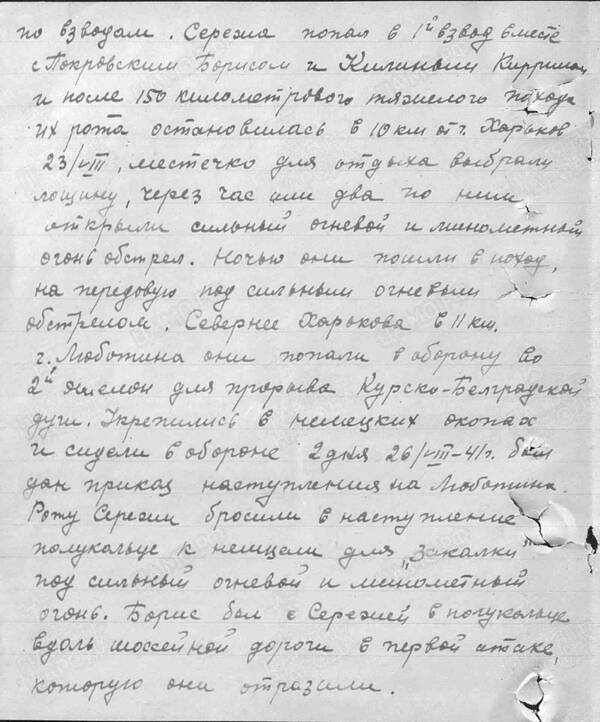 по взводам. Сережа попал в 1й взвод вместе
с Покровским Борисом и Килиным
и после 150 километрового тяжелого похода
их рота остановилась в 10 км от г. Харьков
23/VIII, местечко для отдыха выбрали
лощину, через час или два по ним
открыли сильный огневой и минометный
огонь обстрел. Ночью они пошли в поход,
на передовую под сильным огневым
обстрелом. Севернее Харькова в 11 км.
г. Люботина они попали в оборону во
2й эшелон для прорыва Курско-Белградской
дуги. Укрепились в немецких окопах
и сидели в обороне 2 дня 26/VIII-41г. был
дан приказ наступления на Люботина.
Роту Сережи бросили в наступление
полукольце к немцам для „закалки"
под сильный огневой и минометный
огонь. Борис был с Сережей в полукольце
вдоль шоссейной дороги в первой атаке,
которую они отразили.